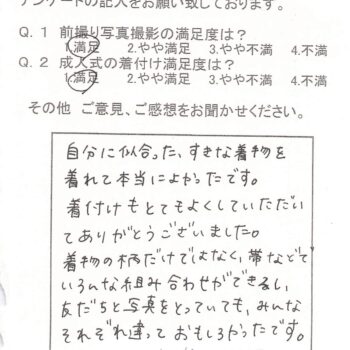 アンケートの記入をお願い致しております。
Q.1 前撮り写真撮影の満足度は？
1.満足 2.やや満足 3.やや不満 4.不満
Q.2 成人式の着付け満足度は？
1.満足 2.やや満足 3.やや不満 4.不満
その他 ご意見、ご感想をお聞かせください。
自分に似合った、すきな着物を
着れて本当によかったです。
着付けもとてもよくしていただい
てありがとうございました。
着物の柄だけではなく、帯などで
いろんな組み合わせができるし、
友だちと写真をとっていても、みんな
それぞれ違っておもしろかったです。